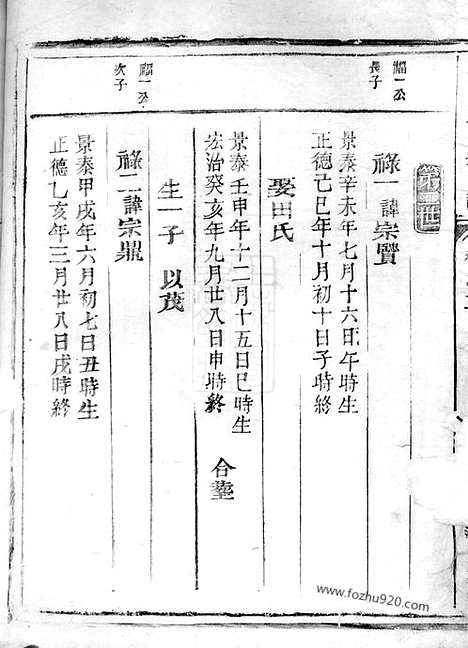 第二世
福一公
長子
祿一諱宗賢
景泰辛未年七月十六日午時生
正德己巳年十月初十日子時終
娶田氏
景泰壬申年十二月十五日巳時生
宏治癸亥年九月廿八日申時終 合葬
生一子 以茂
福一公
次子
祿二諱宗鼎
景泰甲戌年六月初七日丑時生
正德乙亥年三月廿八日戌時終
www.fozhu920.com